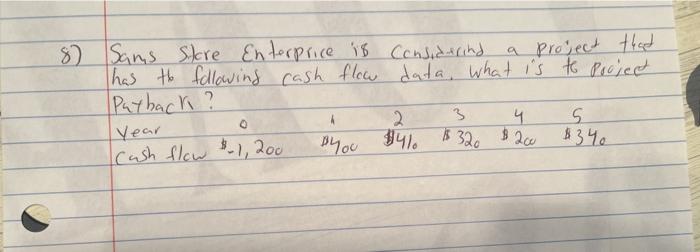 8) Sams Store Enterprice is Considacind a project that
has th following cash flow data. What is to Project
Payback?
Year 0 1 2 3 4 5
Cash flow $-1,200 $400 $410 $320 $200 $340